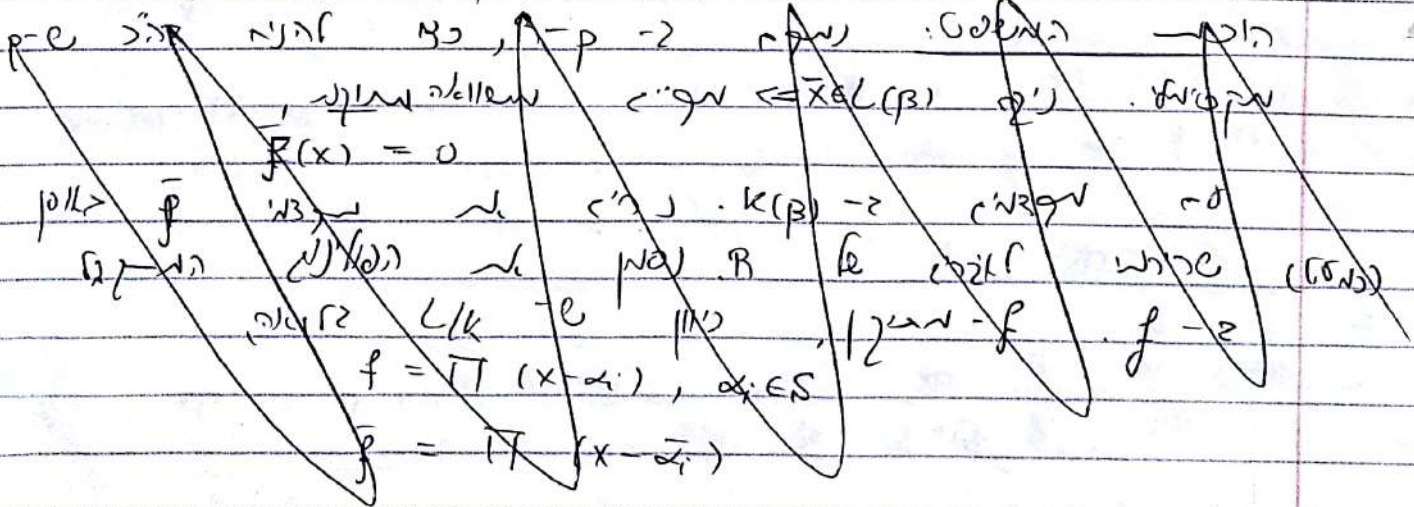 הוכחת המשפט: נמקם ב- p, כדי להניח בה"כ ש-p
מקסימלי. ניקח x̄∈L(β) <= מקיים משוואה מתוקנת,
f̄(x) = 0
עם מקדמים ב- K(β). נרים את מקדמי f̄ באופן
(כמעט) שרירותי לאברי של R. נסמן את הפולינום המתקבל
ב- f. f - מתוקן, כיוון ש L/K גלואה,
f = ∏ (x-αᵢ), αᵢ∈S
f̄ = ∏ (x-ᾱᵢ)